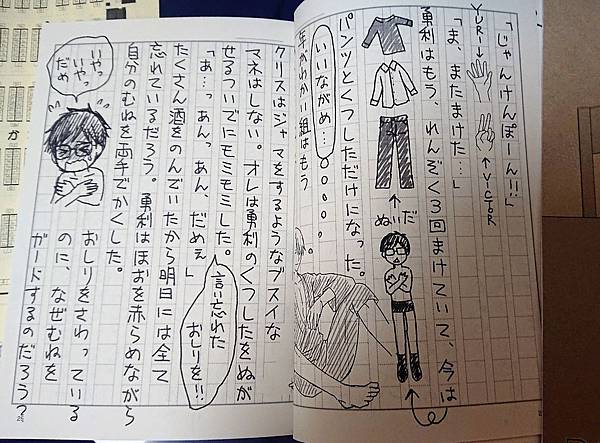 「じゃんけんぽーん!!」
YURI→
←VICTOR
「ま、またまけた…」
勇利はもう、れんぞく3回まけていて、今は
ぬいだ
パンツとくつしただけになった。
いいながめ…
年がわかい組はもう
クリスはジャマをするようなブスイな
マネはしない。オレは勇利のくつしたをぬが
せるついでにモミモミした。
言い忘れた
おしりを!!
「あ…っ あんっ あん、だめぇ」
たくさん酒をのんでいたから明日には全て
忘れているだろう。勇利はほおを赤らめながら
自分のむねを両手でかくした。
いやっ
いやっ
だめ
おしりをさわっている
のに、なぜむねを
ガードするのだろう?